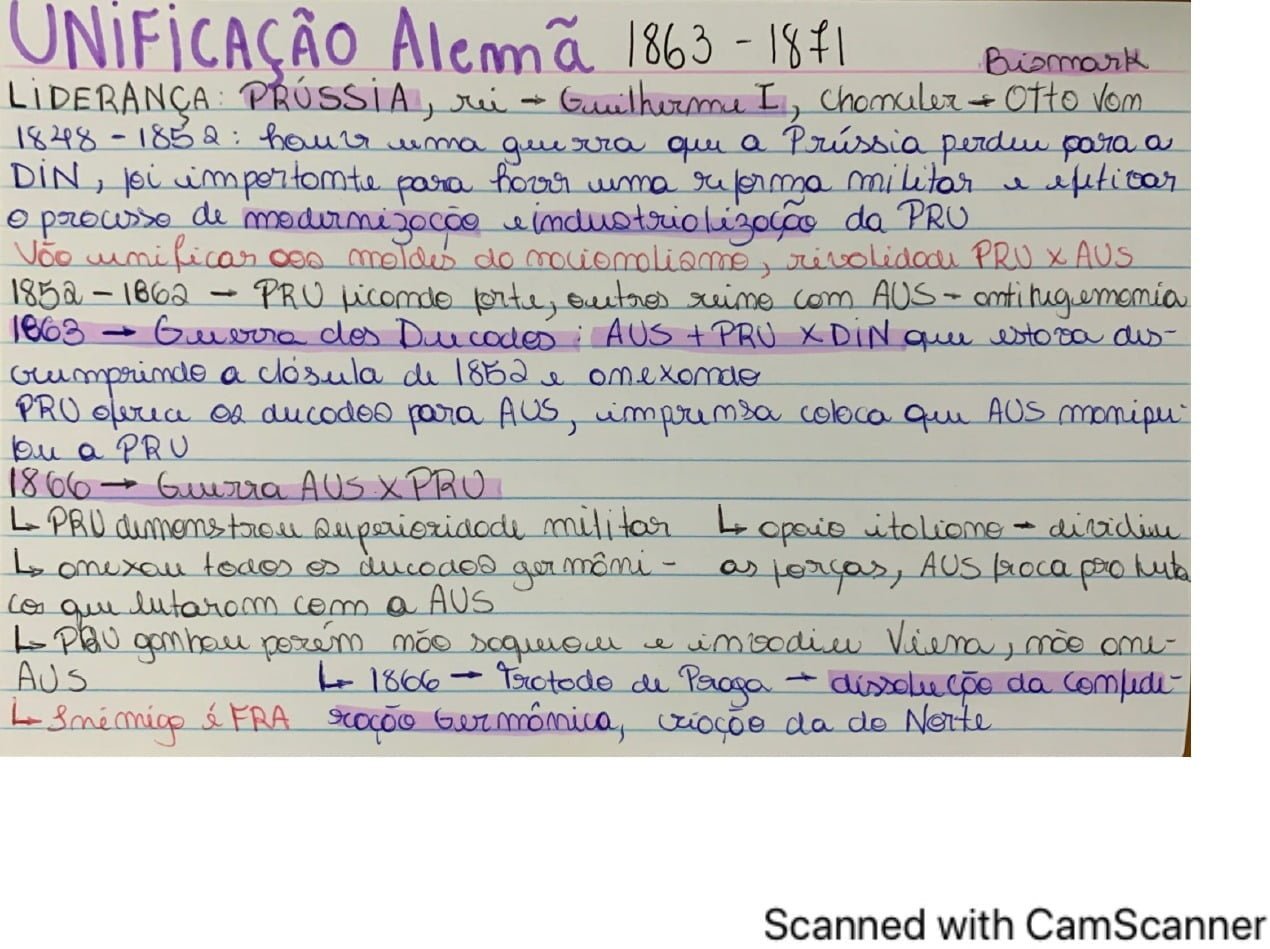 UNIFICAÇÃO Alemã 1863 - 1871
Bismark
LIDERANÇA: PRÚSSIA, rei → Guilherme I, Chanceler → Otto Von
1848 - 1852: houve uma guerra que a Prússia perdeu para a
DIN, foi importante para haver uma reforma militar e efetivar
o processo de modernização e industrialização da PRU
Vão unificar aos moldes do nacionalismo, rivalidade PRU X AUS
1852 - 1862 → PRU ficando forte, outros reino com AUS - antihegemonia
1863 → Guerra dos Ducados: AUS + PRU X DIN que estava des-
crumprindo a clásula de 1852 e anexando
PRU oferece os ducados para AUS, imprensa coloca que AUS manipu-
lou a PRU
1866 → Guerra AUS X PRU
↳ PRU demonstrou superioridade militar ↳ apoio italiano → dividiu
↳ anexou todos os ducados germâni- as forças, AUS fraca pro luta
cos que lutaram com a AUS
↳ PRU ganhou porém não saqueou e invadiu Viena, não ane-
AUS ↳ 1866 → Tratado de Praga → dissolução da confede-
↳ Inimigo é FRA ração Germânica, criação da do Norte
Scanned with CamScanner